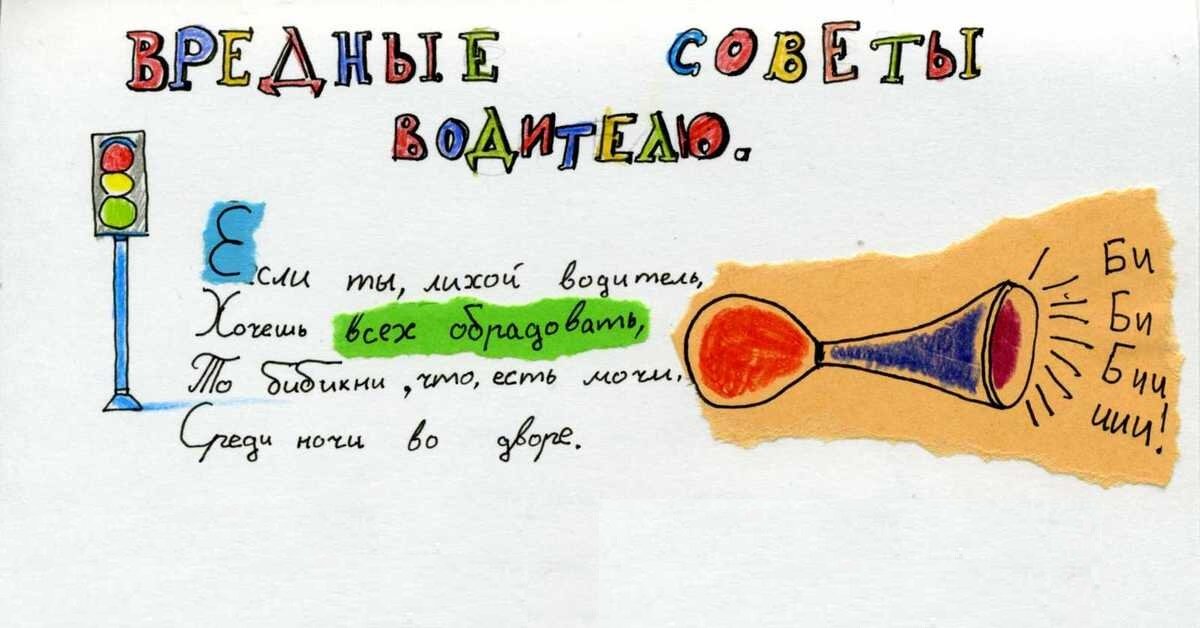 ВРЕДНЫЕ СОВЕТЫ
ВОДИТЕЛЮ.
Если ты, лихой водитель,
Хочешь всех обрадовать,
То бибикни, что, есть мочи,
Среди ночи во дворе.
Би
Би
Бии
иии!